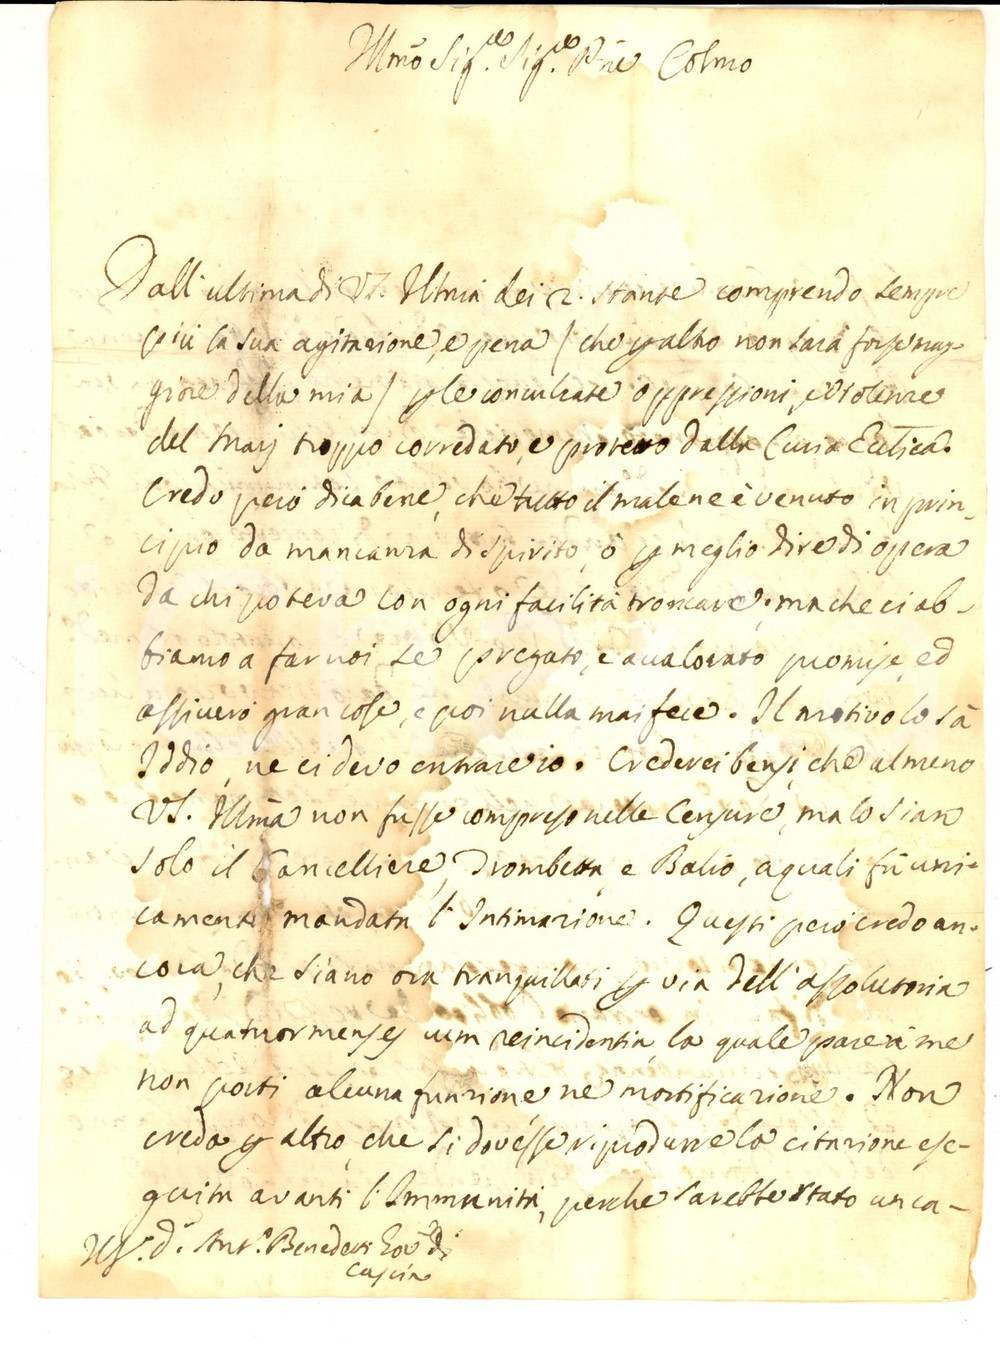 Illmo Sig.re Sig.re P̃ne Colmo
Dall'ultima di VS. Illma dei 2. stante comprendo sempre
più la sua agitazione, e pena / che p altro non sarà forse mag-
giore della mia / p le conculcate oppressioni, e violenze
del Marj troppo corredato, e protetto dalla Curia Ecclica.
Credo però dica bene, che tutto il male ne è venuto in prin-
cipio da mancanza di spirito, ò p meglio dire di opera
da chi poteva con ogni facilità troncare; ma che ci ab-
biamo a far noi, se pregato, e avalorato promise, ed
assicurò gran cose, e poi nulla mai fece. Il motivo lo sà
Iddio, ne ci devo entrare io. Crederei bensi, che almeno
VS. Illma non fusse compreso nelle Censure, ma lo sian
solo il Cancelliere, Trombetta, e Balio, a quali fù uni-
camente mandata l'Intimazione. Questi però credo an-
cora, che siano ora tranquillati p via dell'assolutoria
ad quatuor menses cum reincidentia, la quale parerà me
non porti alcuna funzione ne mortificazione. Non
credo p altro, che si dovesse riprodurre la citazione ese-
guita avanti l'Immunità, perche sarebbe stato un ca-
Sr. d. Ant. Benedetti Gov.re di
Cascia